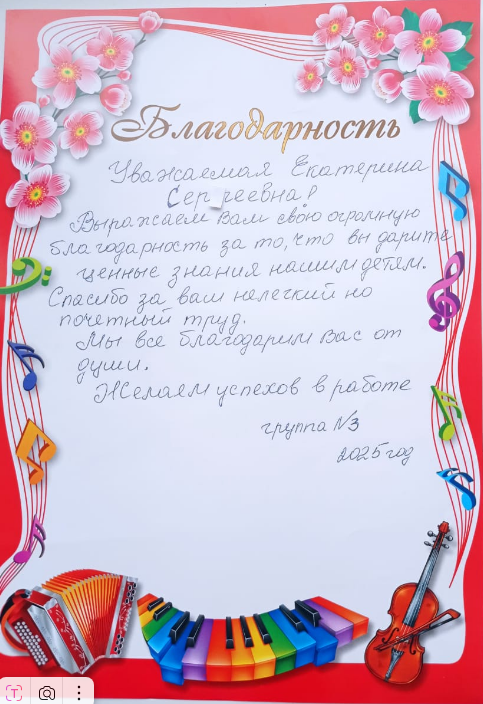 Благодарность
Уважаемая Екатерина
Сергеевна!
Выражаем Вам свою огромную
благодарность за то, что вы дарите
ценные знания нашим детям.
Спасибо за ваш нелегкий но
почетный труд.
Мы все благодарим Вас от
души.
Желаем успехов в работе
группа №3
2025 год